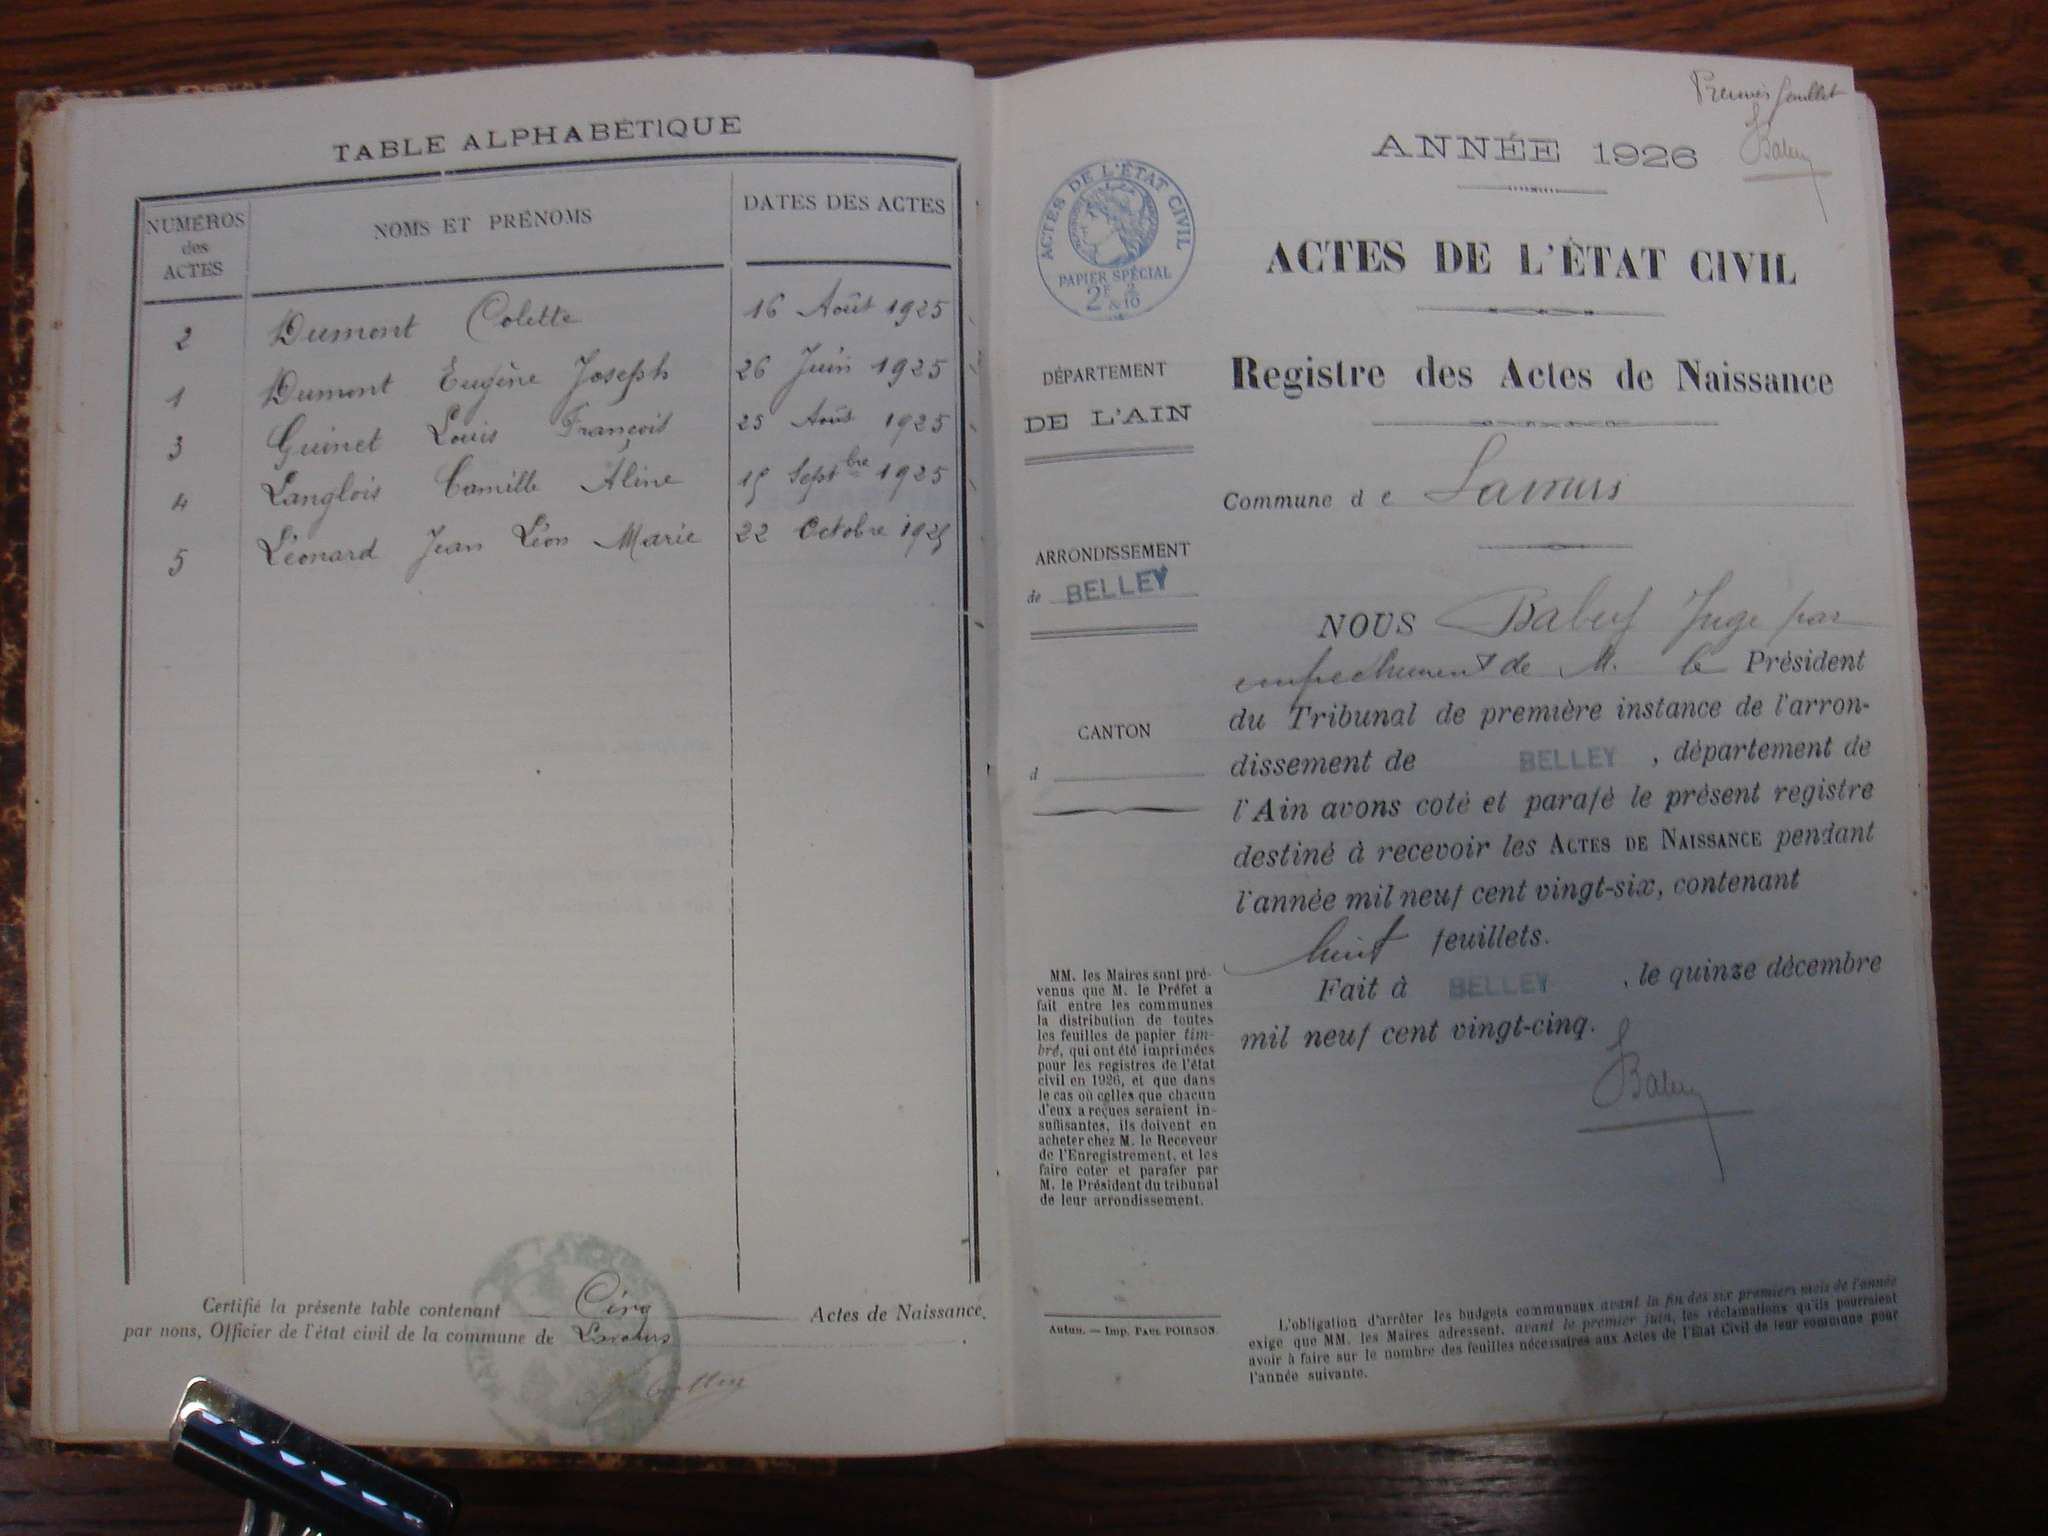 TABLE ALPHABÉTIQUE
NUMÉROS des ACTES
NOMS ET PRÉNOMS
DATES DES ACTES
2 Dumont Colette 16 Août 1925
1 Dumont Eugène Joseph 26 Juin 1925
3 Guinet Louis François 25 Août 1925
4 Langlois Camille Aline 15 Septbre 1925
5 Léonard Jean Léon Marie 22 Octobre 1925
Certifié la présente table contenant Cinq Actes de Naissance,
par nous, Officier de l'état civil de la commune de
Premier feuillet
ANNÉE 1926
ACTES DE L'ÉTAT CIVIL
PAPIER SPÉCIAL
ACTES DE L'ÉTAT CIVIL
Registre des Actes de Naissance
DÉPARTEMENT
DE L'AIN
Commune de
ARRONDISSEMENT
de BELLEY
CANTON
d
NOUS Juge par
empechement de M. le Président
du Tribunal de première instance de l'arron-
dissement de BELLEY, département de
l'Ain avons coté et parafé le présent registre
destiné à recevoir les ACTES DE NAISSANCE pendant
l'année mil neuf cent vingt-six, contenant
huit feuillets.
Fait à BELLEY, le quinze décembre
mil neuf cent vingt-cinq.
MM. les Maires sont pré-
venus que M. le Préfet a
fait entre les communes
la distribution de toutes
les feuilles de papier tim-
bré, qui ont été imprimées
pour les registres de l'état
civil en 1926, et que dans
le cas où celles que chacun
d'eux a reçues seraient in-
suffisantes, ils doivent en
acheter chez M. le Receveur
de l'Enregistrement, et les
faire coter et parafer par
M. le Président du tribunal
de leur arrondissement.
Autun. — Imp. PAUL POIRSON.
L'obligation d'arrêter les budgets communaux avant la fin des six premiers mois de l'année
exige que MM. les Maires adressent, avant le premier juin, les réclamations qu'ils pourraient
avoir à faire sur le nombre des feuilles nécessaires aux Actes de l'État Civil de leur commune pour
l'année suivante.